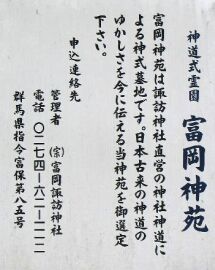 神道式霊園
富岡神苑
富岡神苑は諏訪神社直営の神社神道に
よる神式墓地です。日本古来の神道の
ゆかしさを今に伝える当神苑を御選定
下さい。
申込連絡先
管理者 ㈪富岡諏訪神社
電話 〇二七四ー六二ー一一一
群馬県指令富保第八五号